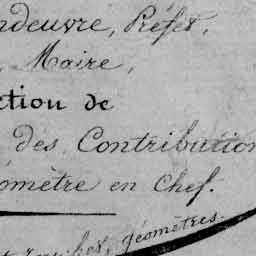 ndeuvre, Préfet,
Maire,
ction de
des Contribution
omètre en Chef.
géomètres.